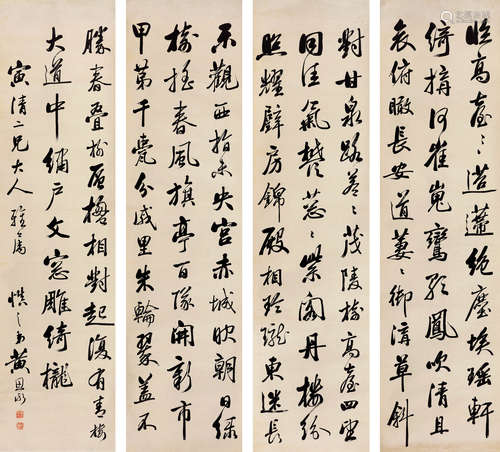 臨高臺〻迢遞絕塵埃瑤軒
綺構何崔嵬鸞歌鳳吹清且
哀俯瞰長安道萋〻御溝草斜
對甘泉路蒼〻茂陵樹高臺四望
同佳氣鬱葱〻紫閣丹樓紛
照耀璧房錦殿相玲瓏東迷長
樂觀西指未央宮赤城映朝日綠
樹搖春風旗亭百隊開新市
甲第千甍分戚里朱輪翠蓋不
勝春疊榭層楹相對起復有青樓
大道中繡戶文窗雕綺櫳
寅清二兄大人雅屬 弟黃恩彤